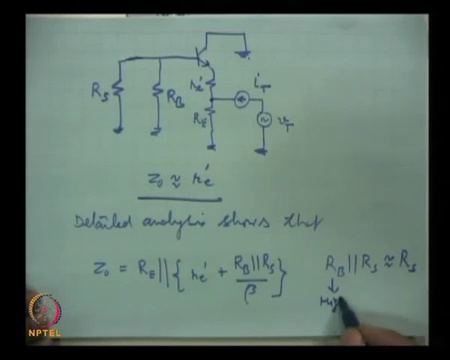 R_S R_B r_e' i_T
R_E v_T
Z_0 ≈ r_e'
Detailed analysis shows that
Z_0 = R_E || { r_e' + R_B||R_S / β } R_B || R_S ≈ R_S
↓
NPTEL